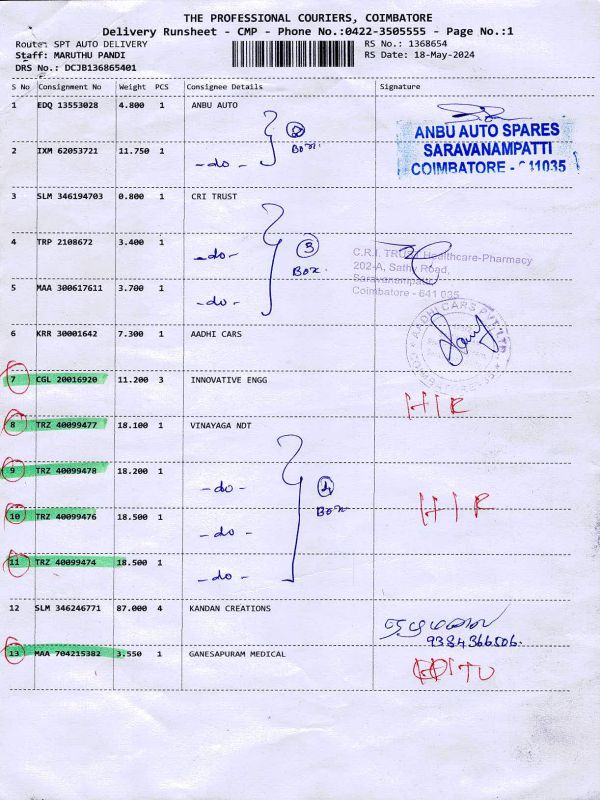 THE PROFESSIONAL COURIERS, COIMBATORE
Delivery Runsheet - CMP - Phone No.:0422-3505555 - Page No.:1
Route: SPT AUTO DELIVERY
RS No.: 1368654
Staff: MARUTHU PANDI
RS Date: 18-May-2024
DRS No.: DCJB136865401
S No Consignment No Weight PCS Consignee Details Signature
1 EDQ 13553028 4.800 1 ANBU AUTO
2 Box.
ANBU AUTO SPARES
SARAVANAMPATTI
COIMBATORE - 641035
2 IXM 62053721 11.750 1 -do-
3 SLM 346194703 0.800 1 CRI TRUST
4 TRP 2108672 3.400 1 -do-
3 Box.
C.R.I. TRUST Healthcare-Pharmacy
202-A, Sathy Road,
Saravanampatti
Coimbatore - 641 035
5 MAA 300617611 3.700 1 -do-
6 KRR 30001642 7.300 1 AADHI CARS
AADHI CARS PVT LTD
7 CGL 20016920 11.200 3 INNOVATIVE ENGG
8 TRZ 40099477 18.100 1 VINAYAGA NDT
9 TRZ 40099478 18.200 1 -do-
4 Box
10 TRZ 40099476 18.500 1 -do-
11 TRZ 40099474 18.500 1 -do-
12 SLM 346246771 87.000 4 KANDAN CREATIONS
9384366506.
13 MAA 704215382 3.550 1 GANESAPURAM MEDICAL